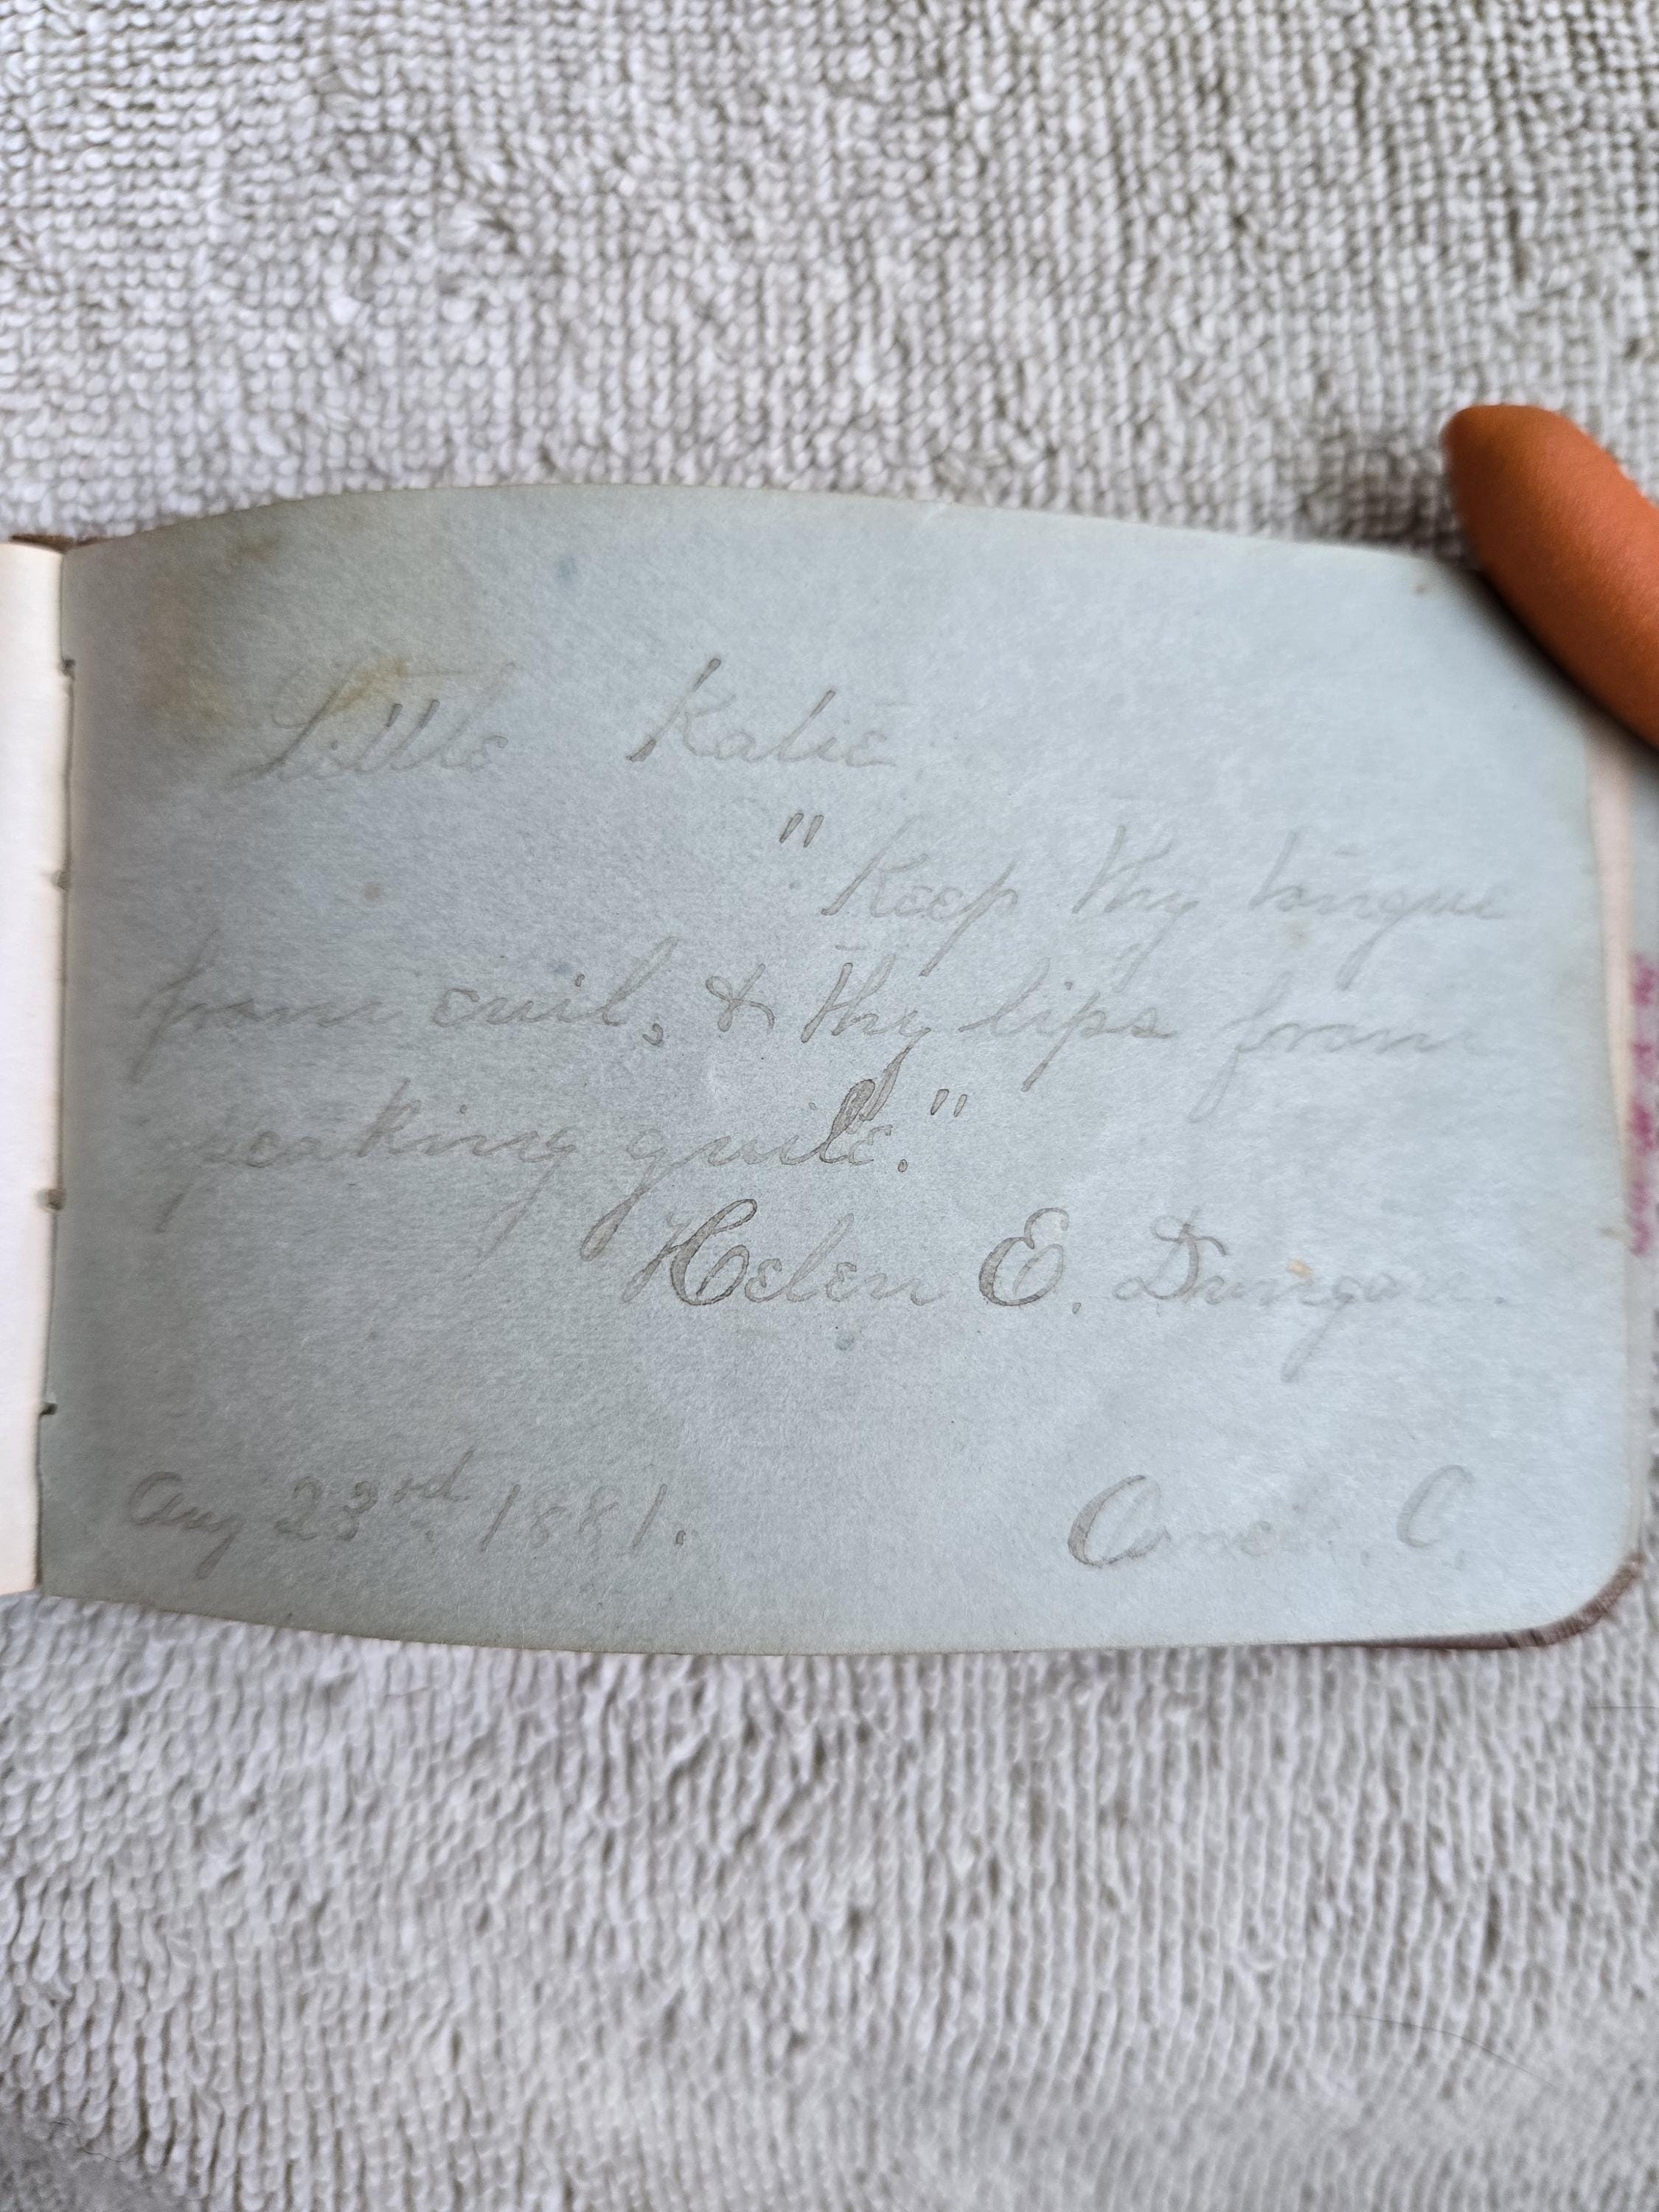 Little Katie
"Keep thy tongue
from evil, & thy lips from
speaking guile."
Helen E. Dungan.
Aug 23rd. 1881. C.